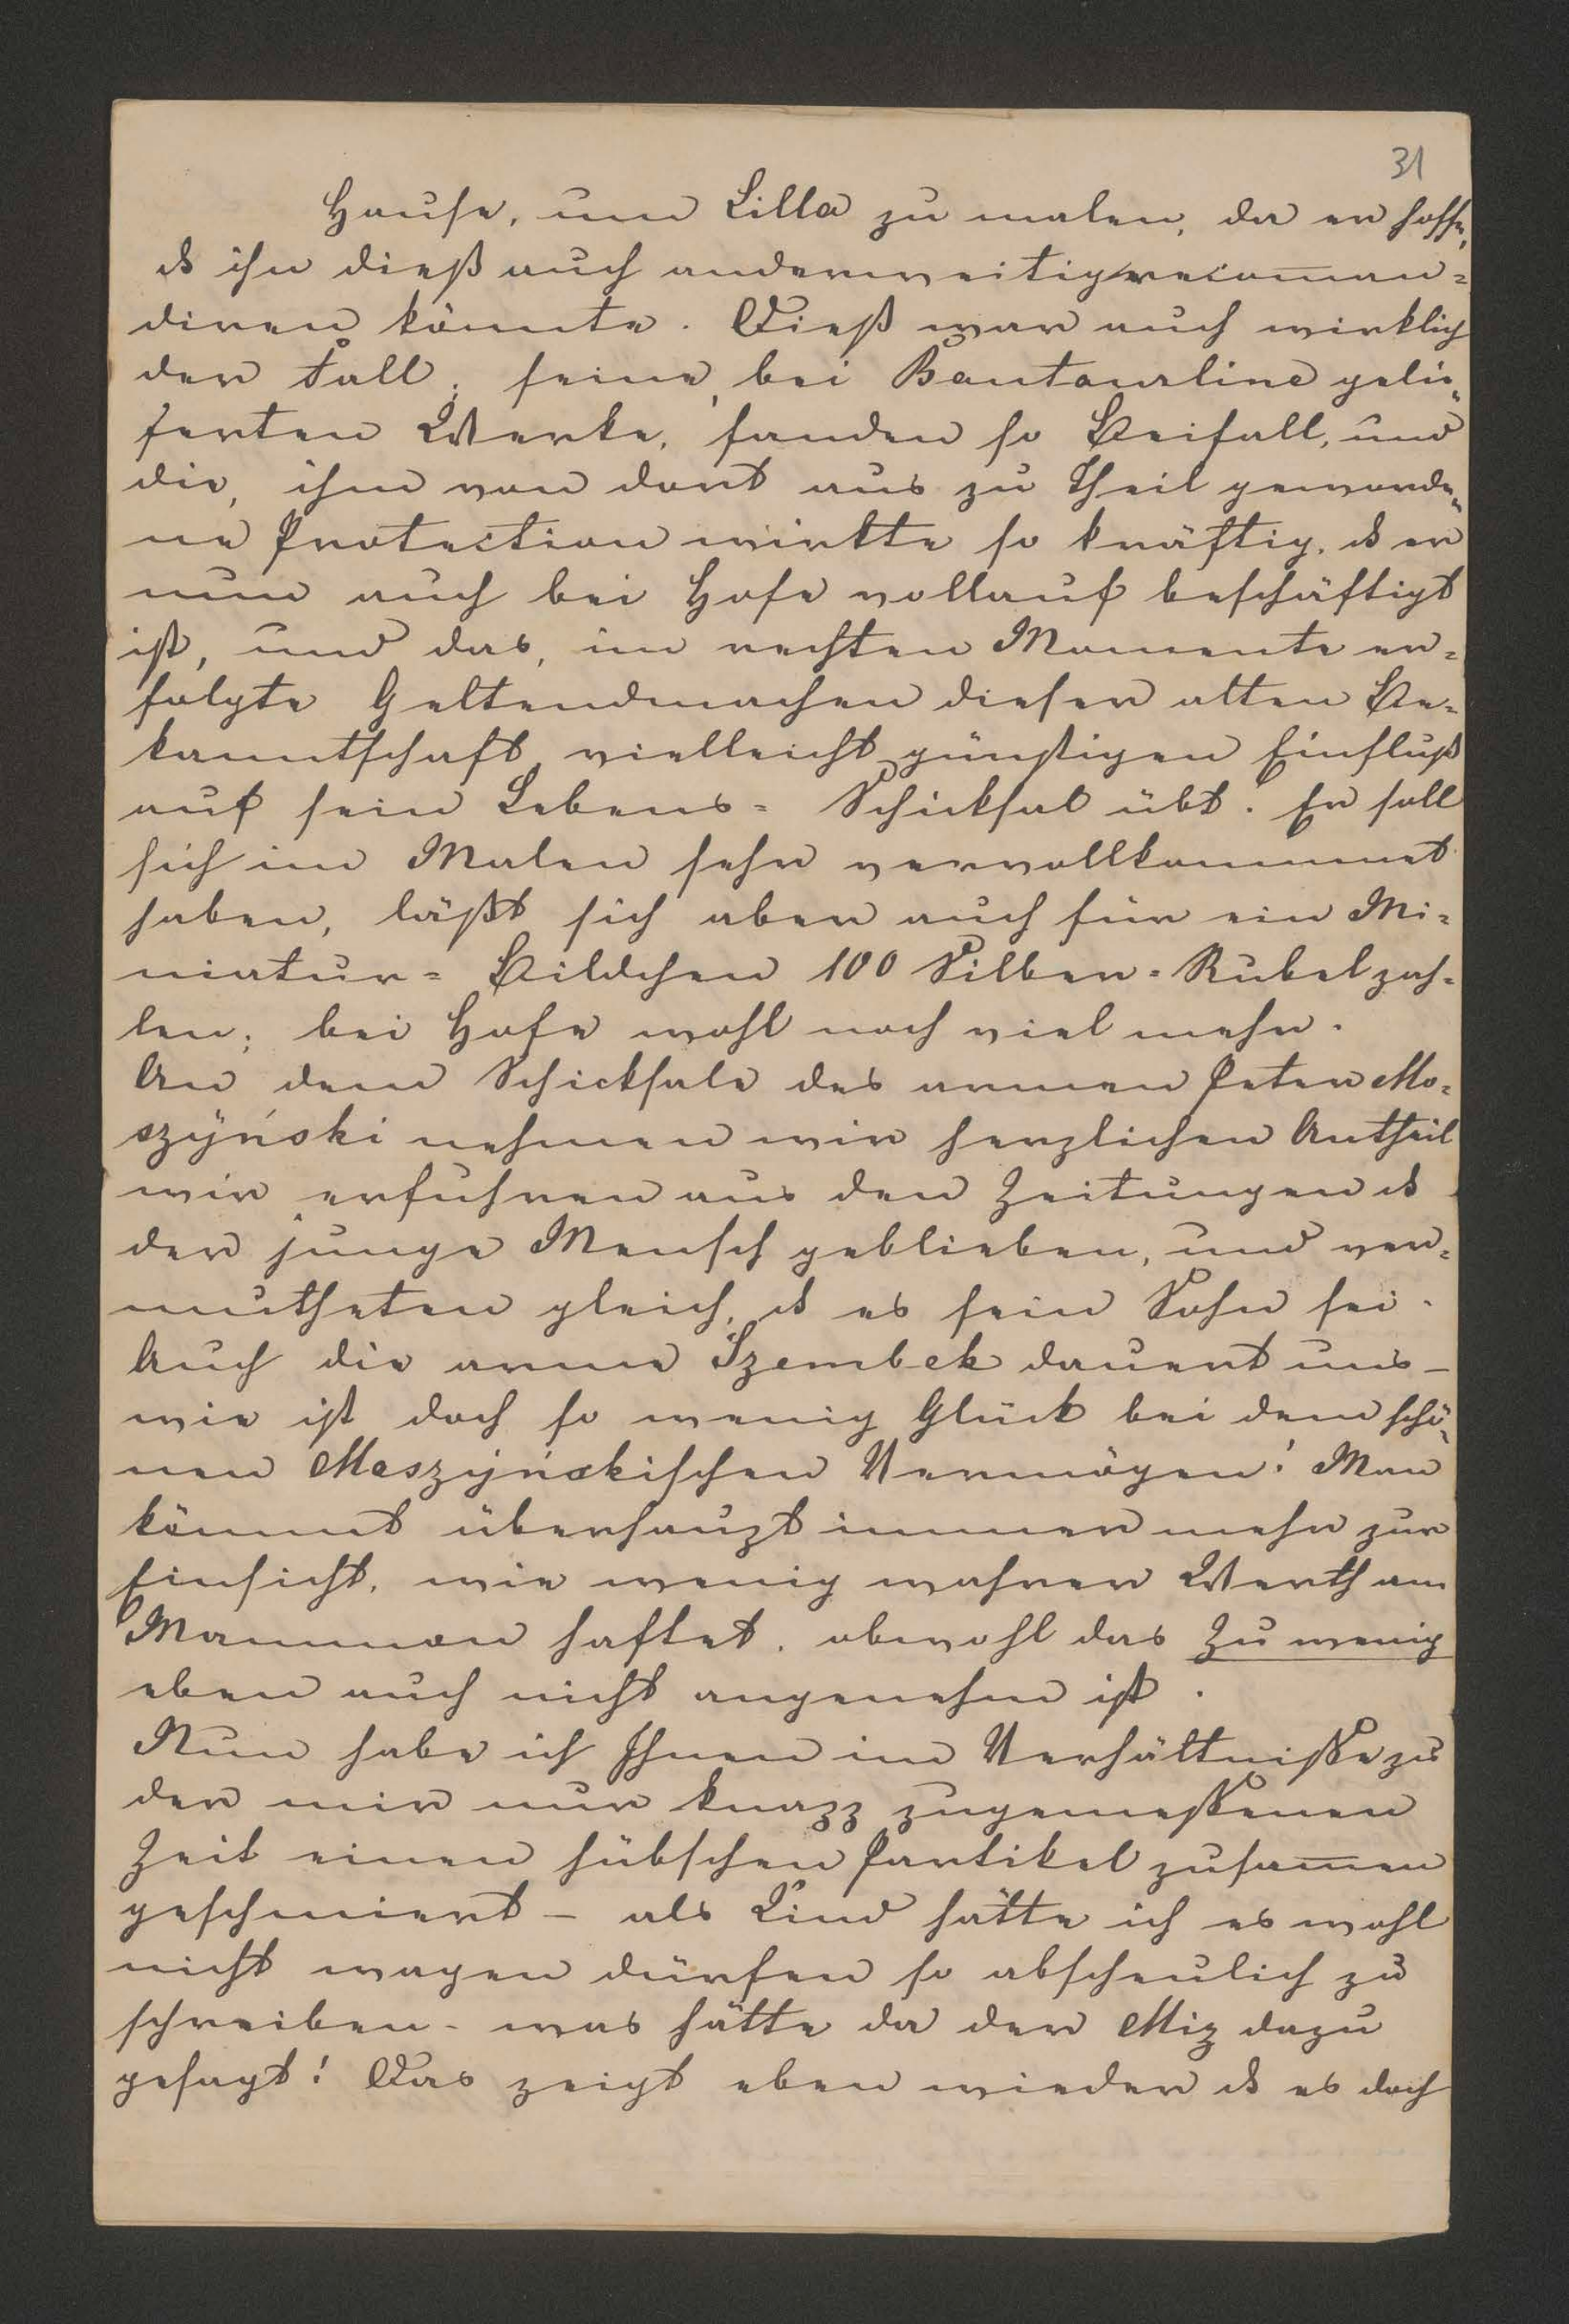 31
Hause, um Lilla zu malen, da er hoffe,
ds ihn dieß auch anderweitig recoman=
diren könnte. Dieß war auch wirklich
der Fall; seine, bei Boutourline gelie„
ferten Werke, fanden so Beifall, und
die, ihm von dort aus zu Theil geworde„
ne Protection wirkte so kräftig, ds er
nun auch bei Hofe vollauf beschäftigt
ist, und das, im rechten Momente er=
folgte Geltendmachen dieser alten Be=
kanntschaft vielleicht günstigen Einfluß
auf sein Lebens= Schicksal übt. Er soll
sich im Malen sehr vervollkommnet
haben, läßt sich aber auch für ein Mi=
niatur= Bildchen 100 Silber=Rubel zah=
len; bei Hofe wohl noch viel mehr.
An dem Schicksale des armen Peter Mo=
szyński nehmen wir herzlichen Antheil
wir erfuhren aus den Zeitungen ds
der junge Mensch geblieben, und ver=
mutheten gleich, ds es sein Sohn sei.
Auch die arme Szembek dauert uns –
wie ist doch so wenig Glück bei dem schö„
nen Moszyńskischen Vermögen! Man
kömmt überhaupt immer mehr zur
Einsicht, wie wenig wahrer Werth am
Mammon haftet, obwohl das Zu wenig
eben auch nicht angenehm ist.
Nun habe ich Ihnen im Verhältniße zu
der mir nur knapp zugemeßenen
Zeit einen hübschen Partikel zusamen
geschmiert – als Kind hätte ich es wohl
nicht wagen dürfen so abscheulich zu
schreiben – was hätte da der Miz dazu
gesagt! Das zeigt eben wieder ds es doch